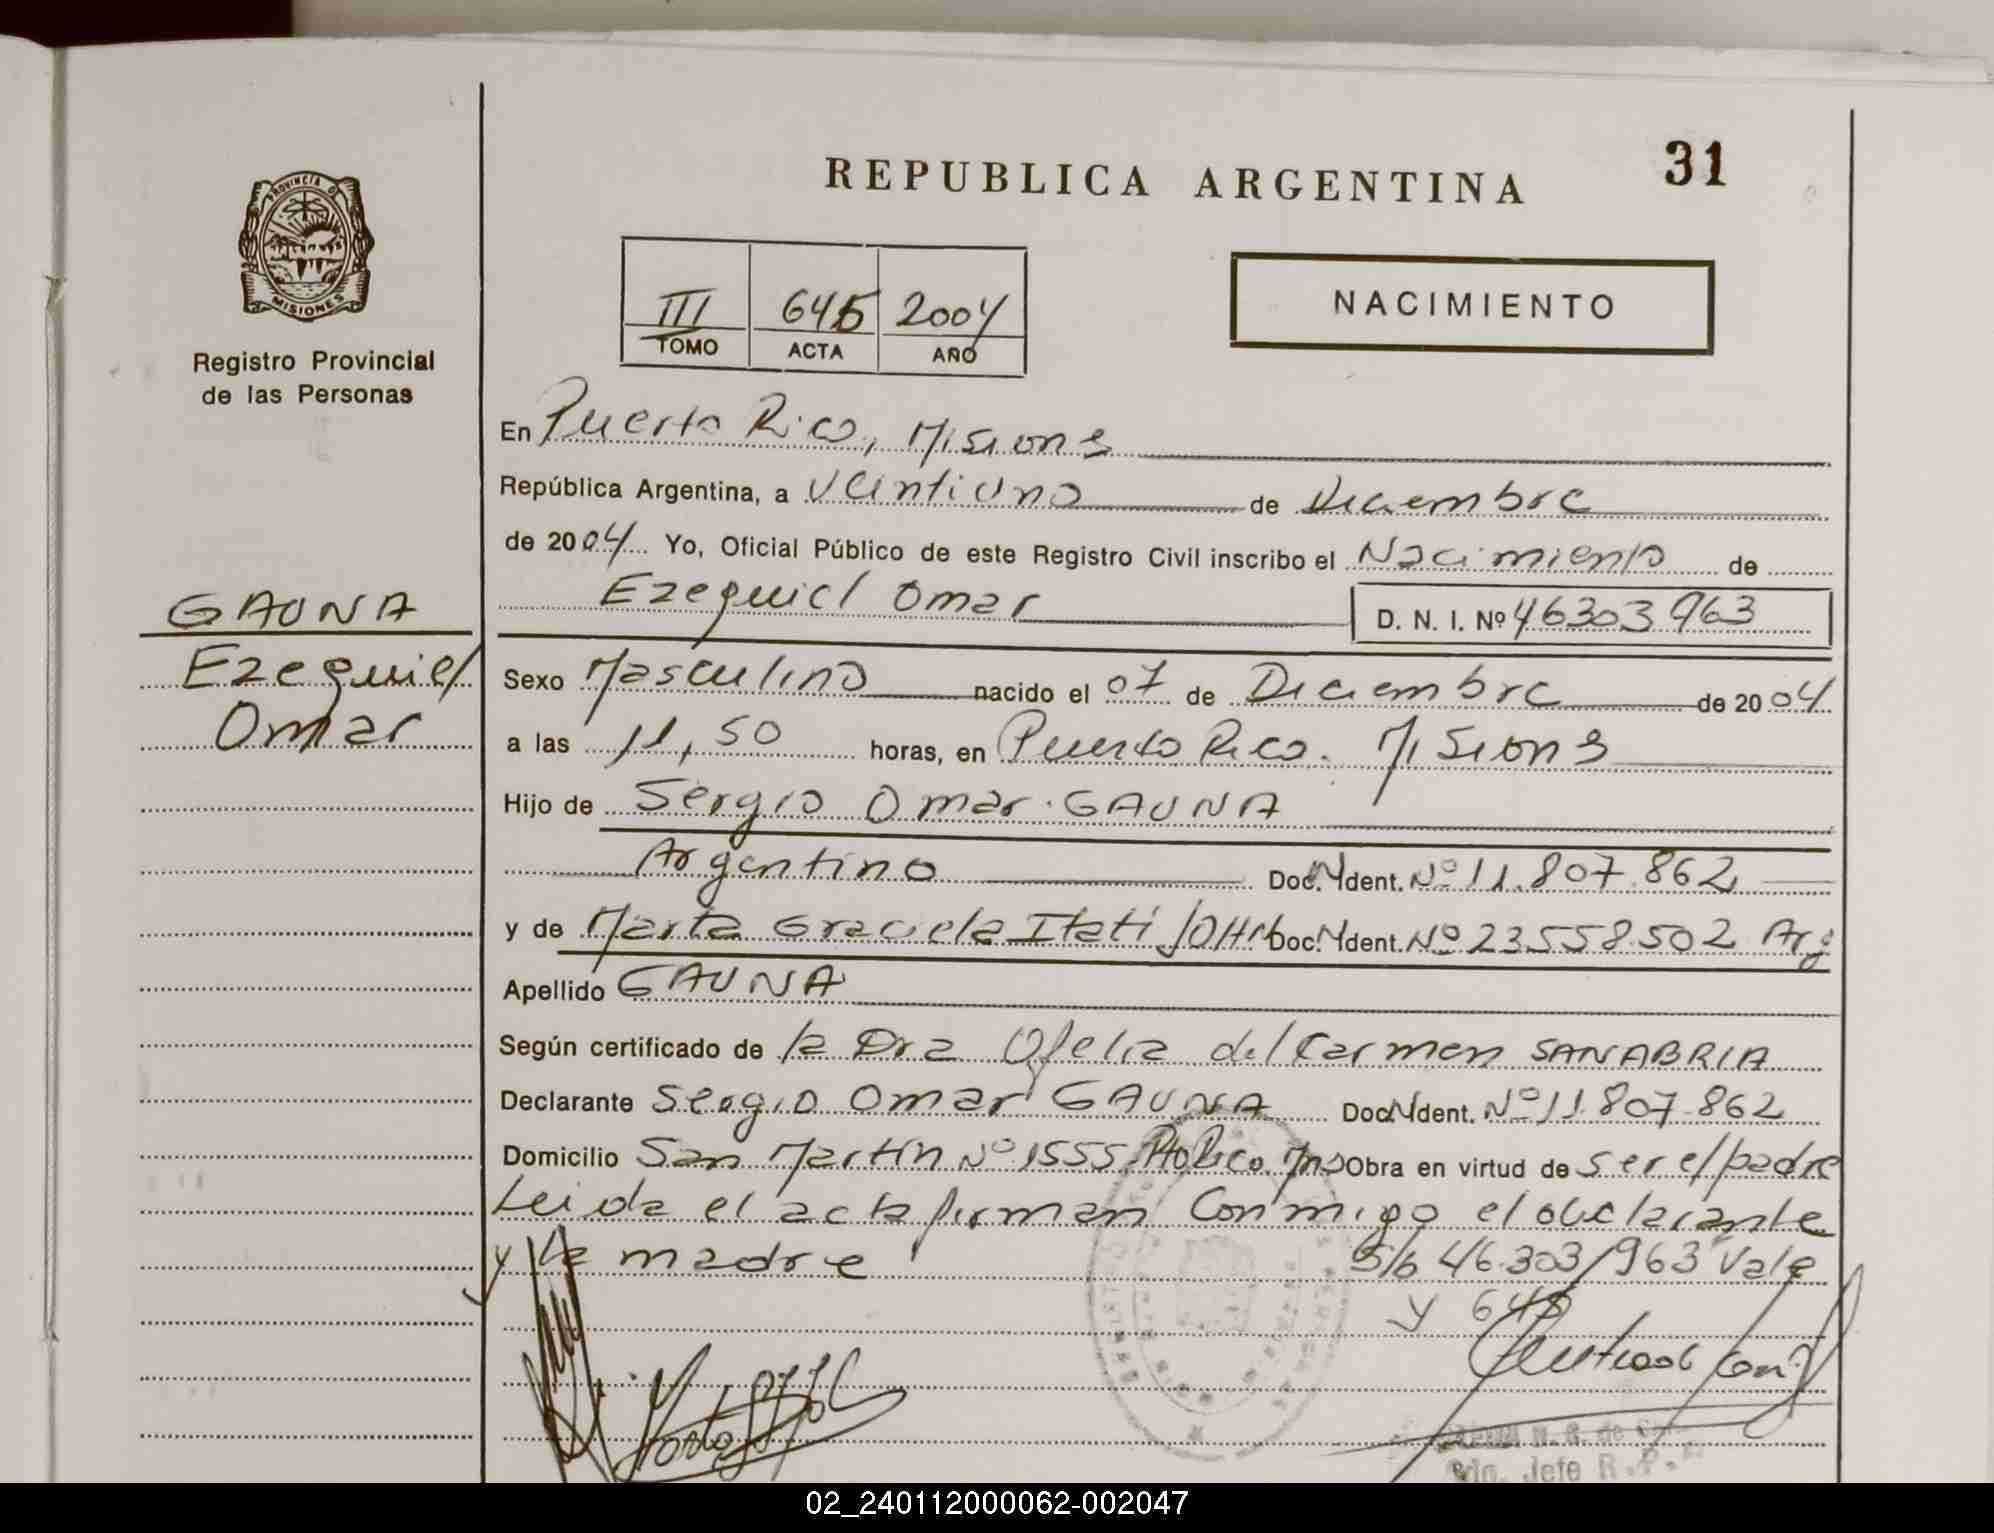 REPUBLICA ARGENTINA
31
PROVINCIA DE
MISIONES
Registro Provincial
de las Personas
III 645 2004
TOMO ACTA AÑO
NACIMIENTO
En Puerto Rico, Misiones
República Argentina, a veintiuno de Diciembre
de 2004 Yo, Oficial Público de este Registro Civil inscribo el Nacimiento de
Ezequiel Omar D. N. I. Nº 46303963
GAUNA
Ezequiel
Omar
Sexo Masculino nacido el 07 de Diciembre de 2004
a las 11,50 horas, en Puerto Rico. Misiones
Hijo de Sergio Omar GAUNA
Argentino Doc. Ident. Nº 11.807.862
y de Marta Graciela Itati Doc. Ident. Nº 23.558.502 Arg
Apellido GAUNA
Según certificado de la Dra Ofelia del Carmen SANABRIA
Declarante Sergio Omar GAUNA Doc. Ident. Nº 11.807.862
Domicilio San Martín Nº 1555 Pto Rico. Mns Obra en virtud de ser el padre
Leida el acta firman conmigo el declarante
y la madre S/b 46.303/963 Vale
y 645
Jefe R.P.
02_240112000062-002047